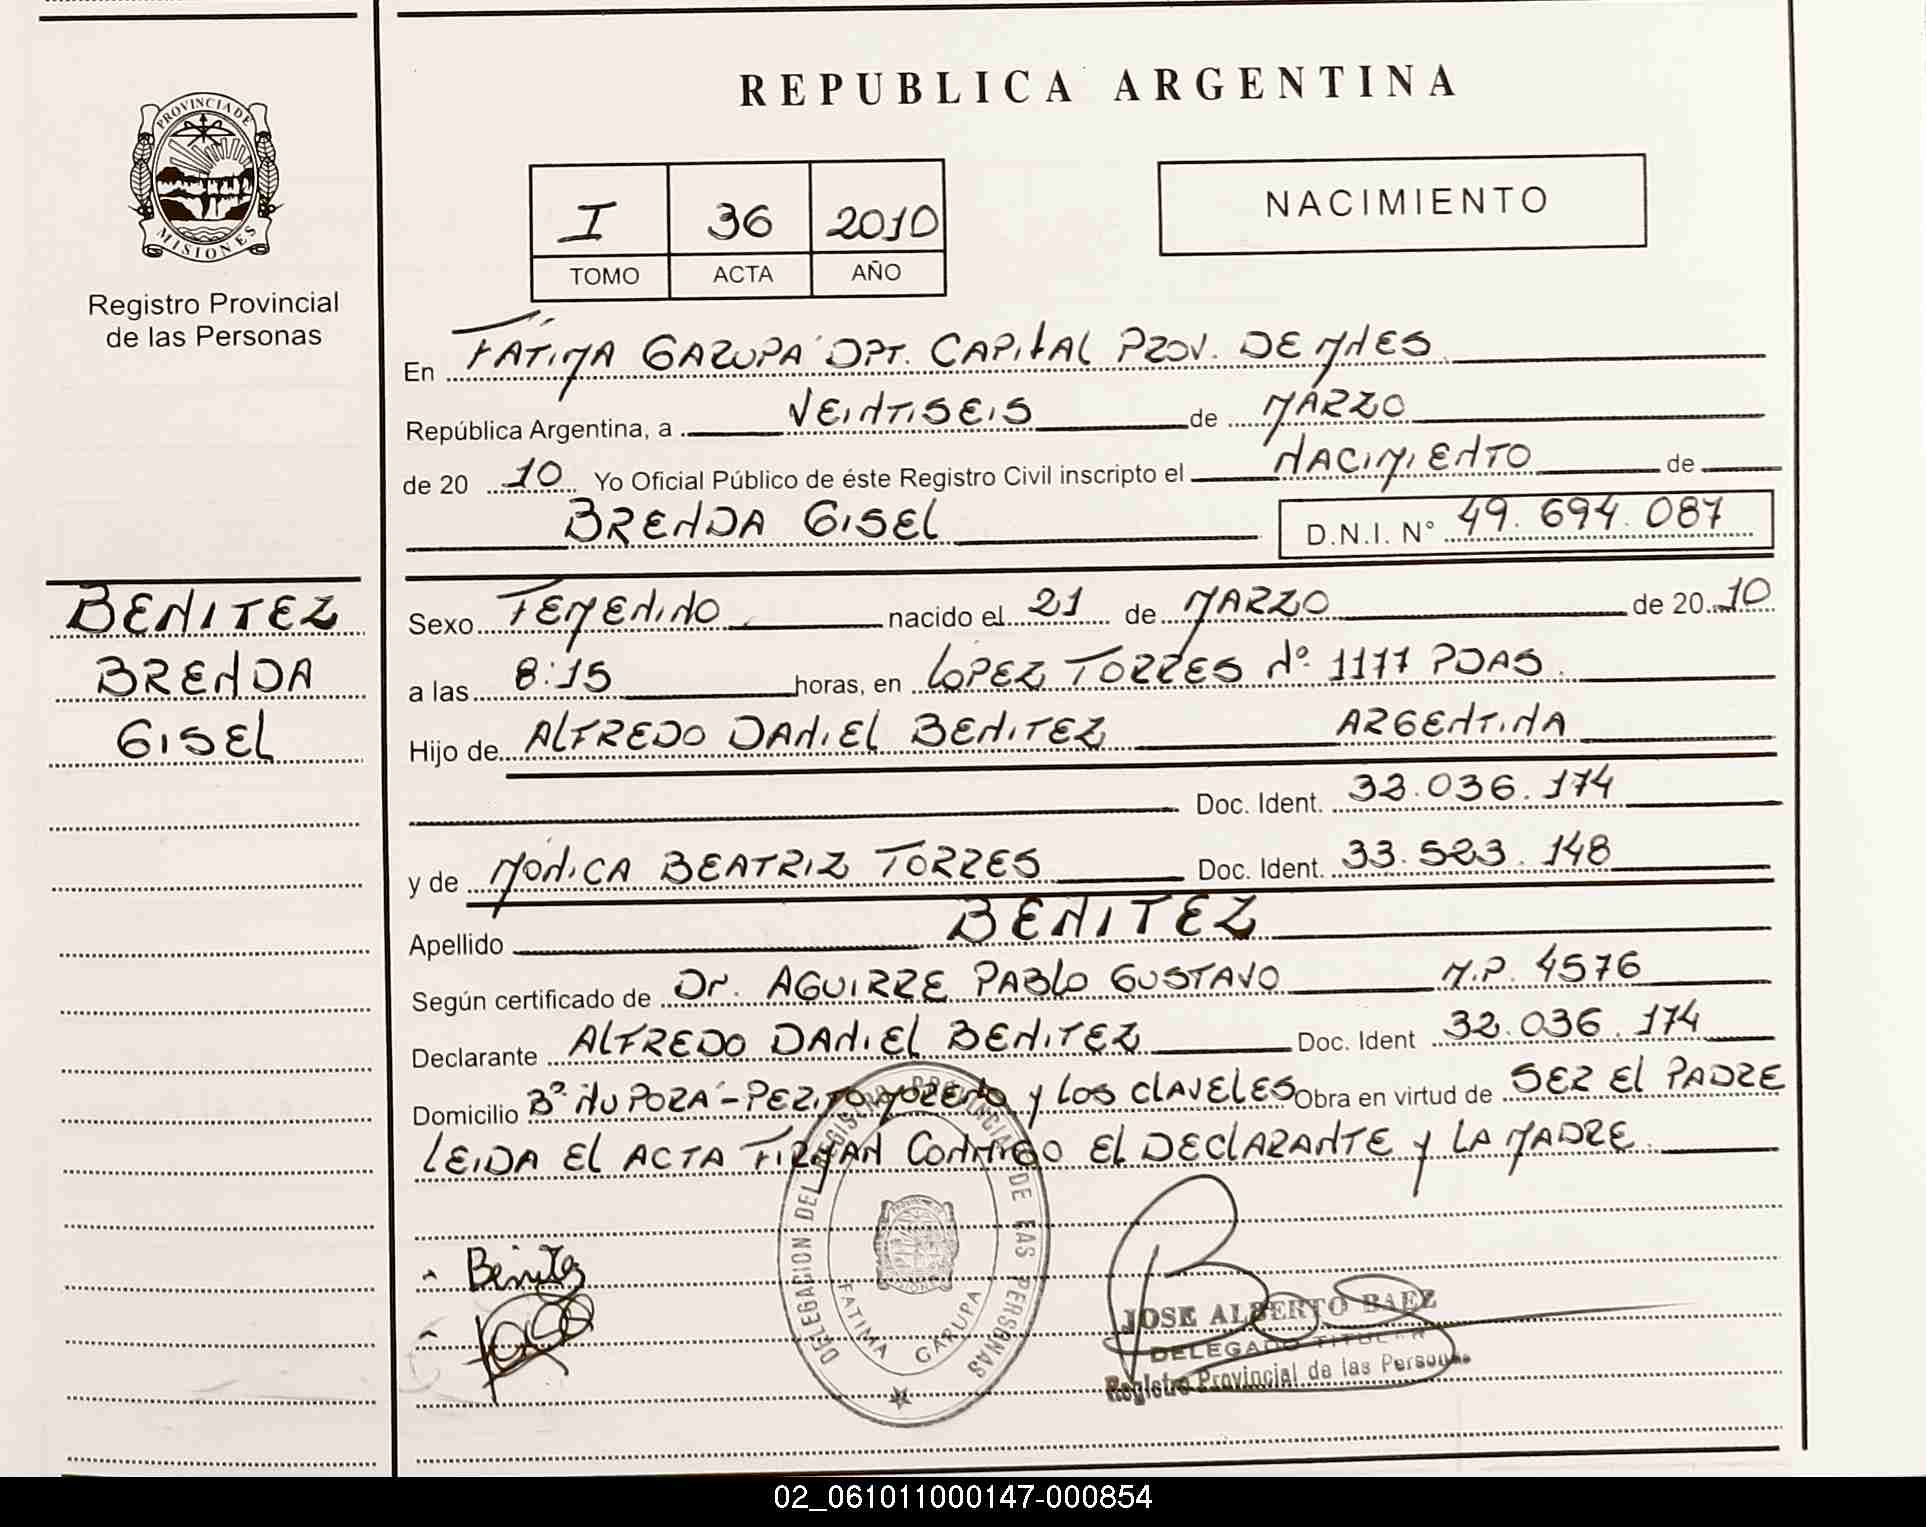 PROVINCIA DE MISIONES
Registro Provincial
de las Personas
BENITEZ
BRENDA
GISEL
REPUBLICA ARGENTINA
I 36 2010
TOMO ACTA AÑO
NACIMIENTO
En FÁTIMA GARUPA DPT. CAPITAL PROV. DE MNES
República Argentina, a VEINTISEIS de MARZO
de 20 10 Yo Oficial Público de éste Registro Civil inscripto el NACIMIENTO de
BRENDA GISEL D.N.I. N° 49.694.087
Sexo FEMENINO nacido el 21 de MARZO de 20 10
a las 8:15 horas, en LOPEZ TORRES Nº 1177 PDAS.
Hijo de ALFREDO DANIEL BENITEZ ARGENTINA
Doc. Ident. 32.036.174
y de MONICA BEATRIZ TORRES Doc. Ident. 33.523.148
Apellido BENITEZ
Según certificado de Dr. AGUIRRE PABLO GUSTAVO M.P. 4576
Declarante ALFREDO DANIEL BENITEZ Doc. Ident 32.036.174
Domicilio Bº ÑU PORA - PERITO MORENO y LOS CLAVELES Obra en virtud de SER EL PADRE
LEIDA EL ACTA FIRMAN CONMIGO EL DECLARANTE y LA MADRE
Benitez
DELEGACION DEL REGISTRO PROVINCIAL DE LAS PERSONAS
FATIMA GARUPA
JOSE ALBERTO BAEZ
DELEGADO TITULAR
Registro Provincial de las Personas
02_061011000147-000854